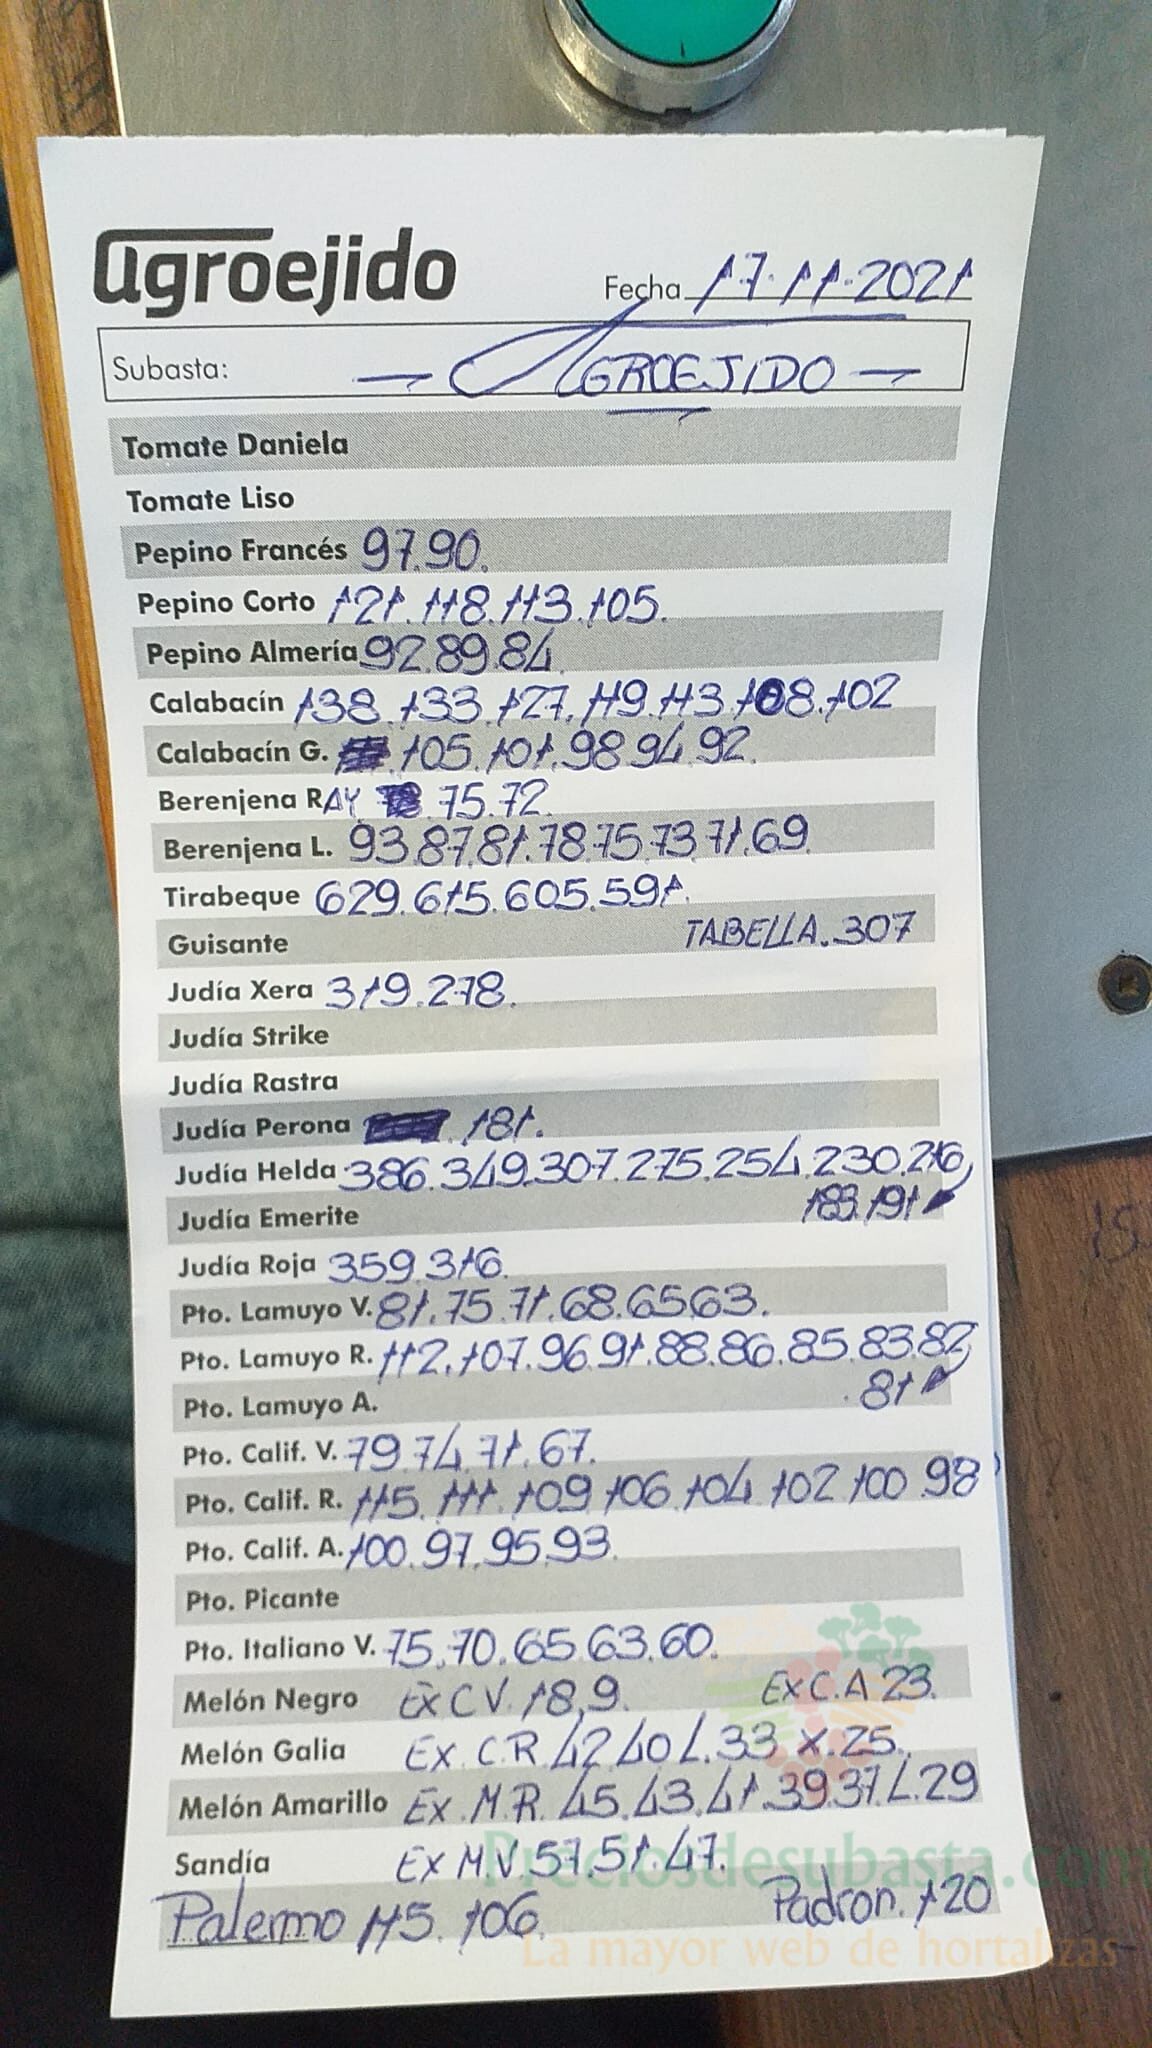 agroejido
Fecha 17.11.2021
Subasta: — AGROEJIDO —
Tomate Daniela
Tomate Liso
Pepino Francés 97.90.
Pepino Corto 121.118.113.105.
Pepino Almería 92.89.84
Calabacín 138.133.127.119.113.108.102
Calabacín G. 105.101.98.94.92.
Berenjena RAY 75.72.
Berenjena L. 93.87.81.78.75.73.71.69.
Tirabeque 629.615.605.591.
Guisante TABELLA.307
Judía Xera 319.278.
Judía Strike
Judía Rastra
Judía Perona 181.
Judía Helda 386.349.307.275.254.230.216,
Judía Emerite 191
Judía Roja 359.316.
Pto. Lamuyo V. 81.75.71.68.65.63.
Pto. Lamuyo R. 112.107.96.91.88.86.85.83.82,
Pto. Lamuyo A. .81
Pto. Calif. V. 79.74.71.67.
Pto. Calif. R. 115.111.109.106.104.102.100.98
Pto. Calif. A. 100.97.95.93.
Pto. Picante
Pto. Italiano V. 75.70.65.63.60.
Melón Negro Ex C V. 18,9. Ex C.A 23.
Melón Galia Ex. C.R. 42.40 L.33 X.25.
Melón Amarillo Ex. M.R. 45.43.41.39.37 L.29
Sandía Ex M.V. 57.51.47.
Palermo 115.106. Padron. 120
Preciosdesubasta.com
La mayor web de hortalizas